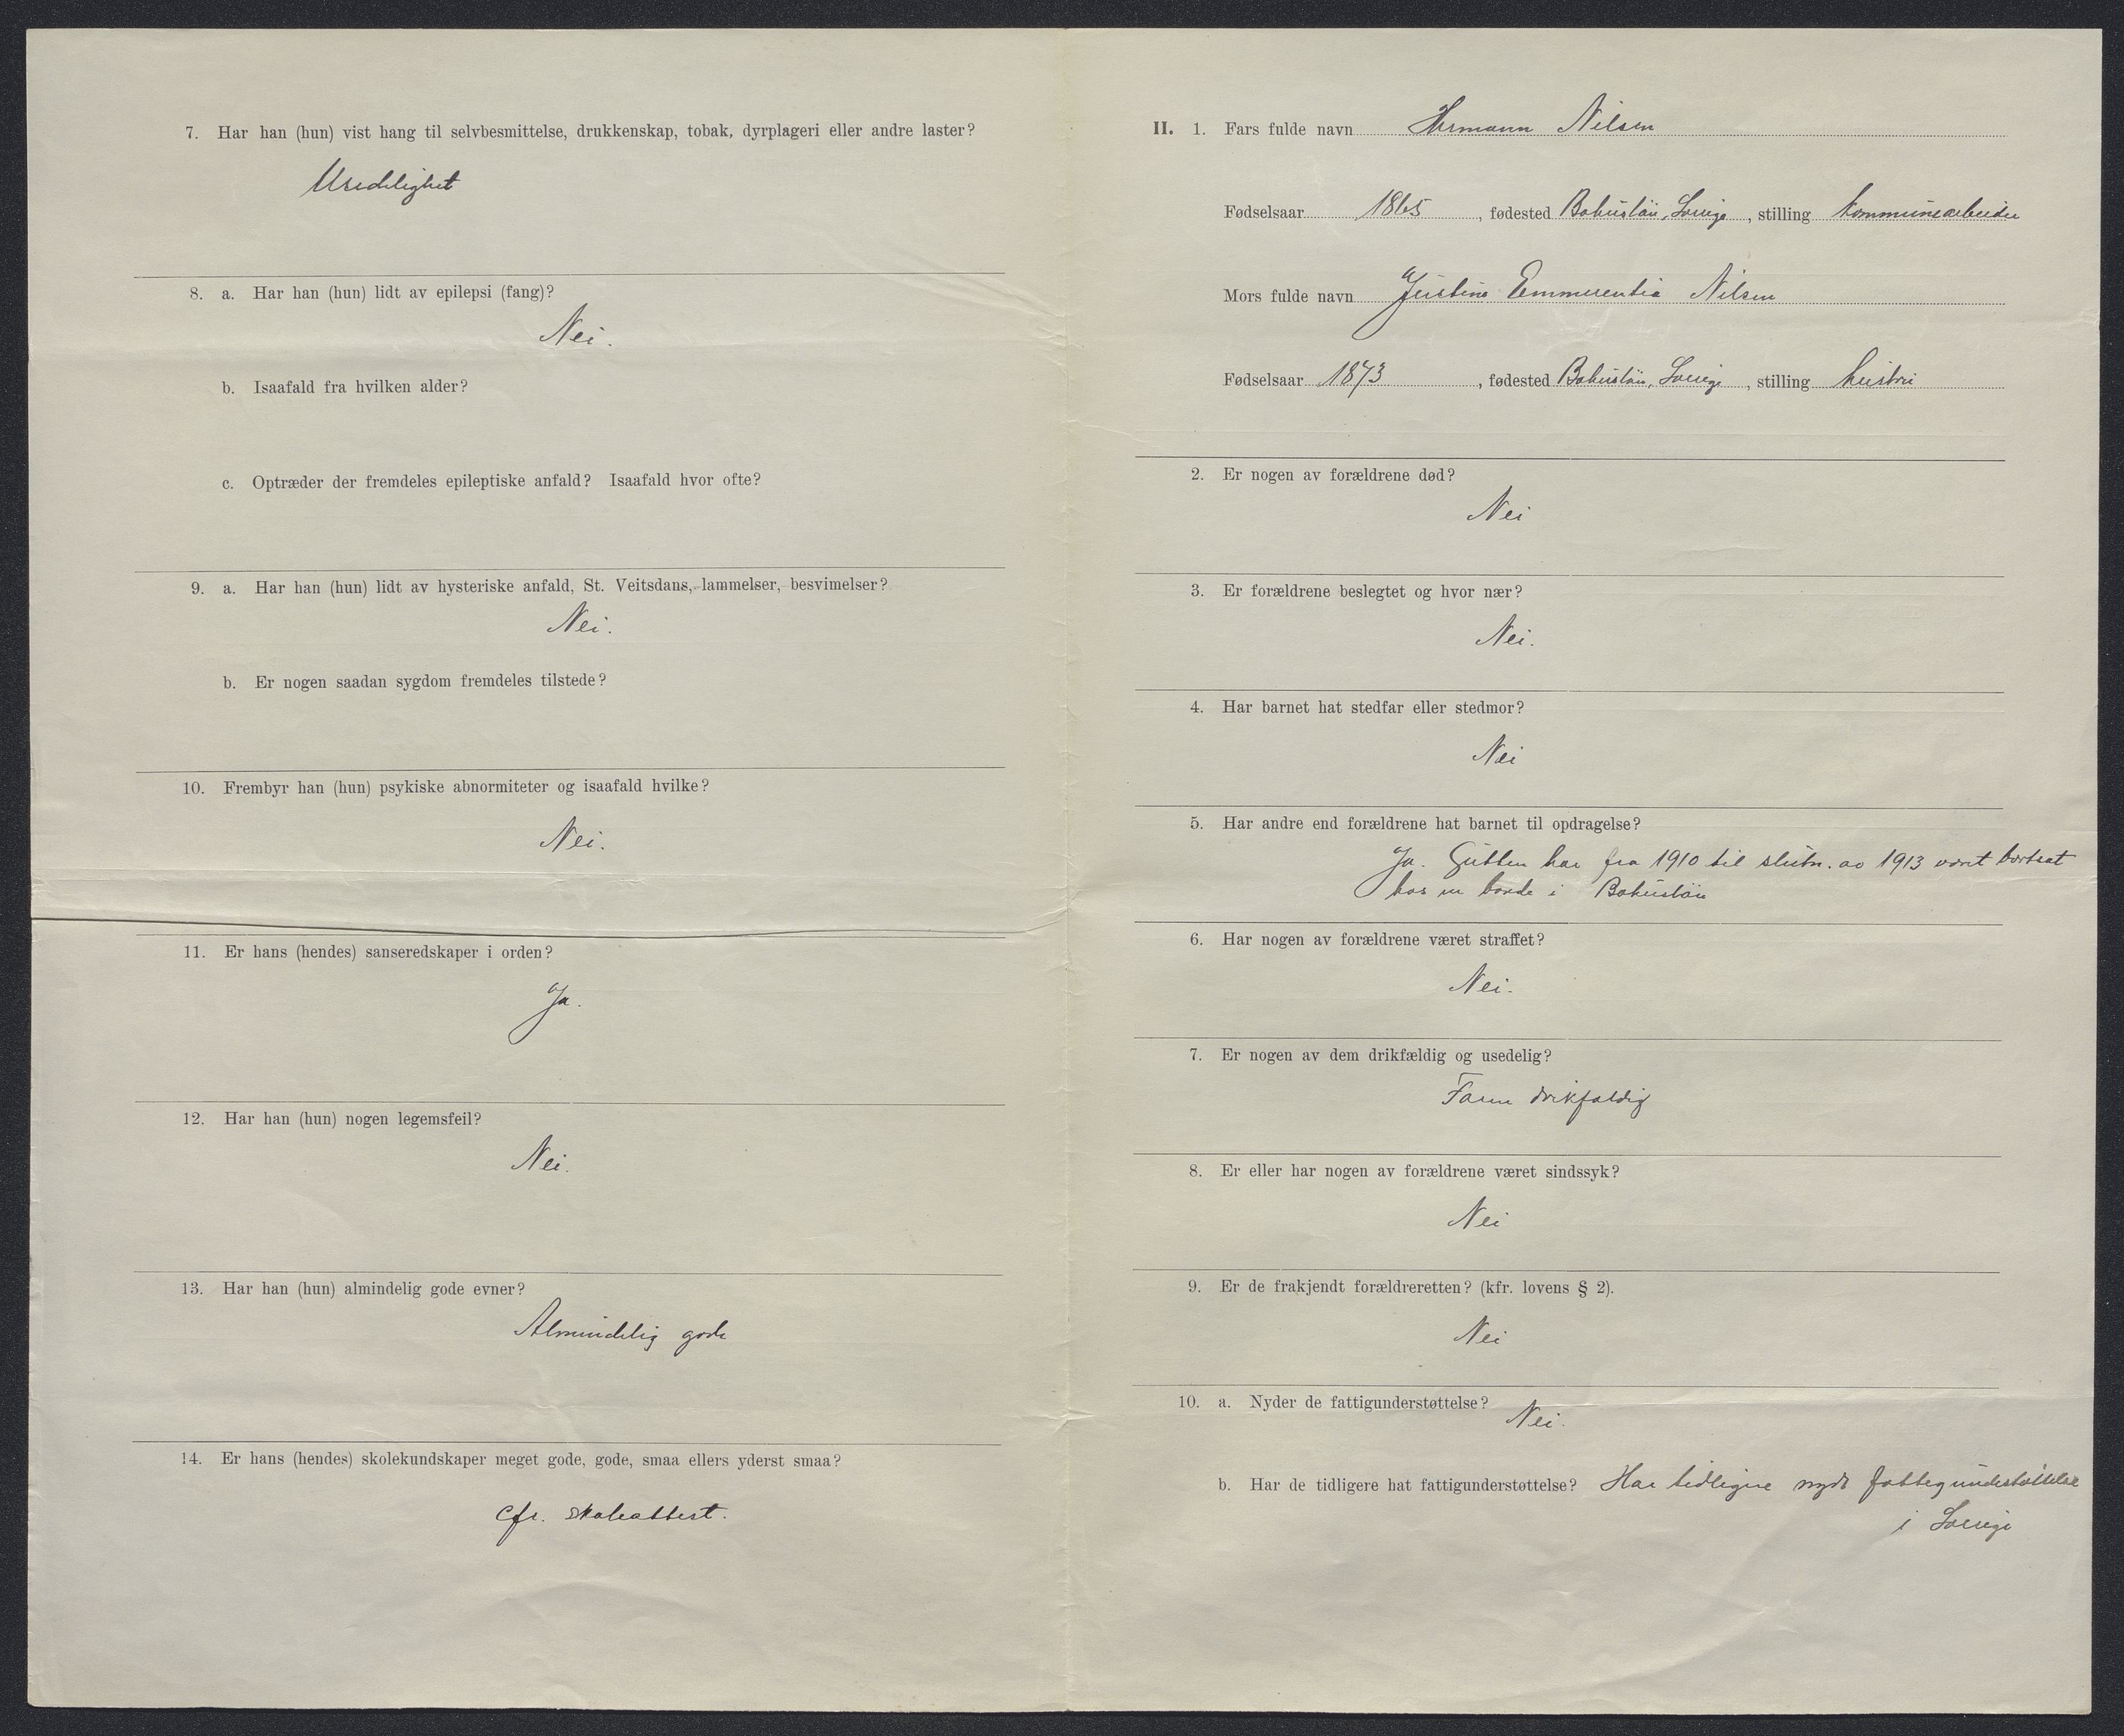 7. Har han (hun) vist hang til selvbesmittelse, drukkenskap, tobak, dyrplageri eller andre laster?
Usedelighet
8. a. Har han (hun) lidt av epilepsi (fang)?
Nei.
b. Isaafald fra hvilken alder?
c. Optræder der fremdeles epileptiske anfald? Isaafald hvor ofte?
9. a. Har han (hun) lidt av hysteriske anfald, St. Veitsdans, lammelser, besvimelser?
Nei.
b. Er nogen saadan sygdom fremdeles tilstede?
10. Frembyr han (hun) psykiske abnormiteter og isaafald hvilke?
Nei.
11. Er hans (hendes) sanseredskaper i orden?
Ja.
12. Har han (hun) nogen legemsfeil?
Nei.
13. Har han (hun) almindelig gode evner?
Almindelig gode
14. Er hans (hendes) skolekundskaper meget gode, gode, smaa ellers yderst smaa?
cfr. skoleattest.
II. 1. Fars fulde navn Hermann Nilsen
Fødselsaar 1865, fødested Bohuslän, Sverige, stilling kommunearbeider
Mors fulde navn Justine Emmerentia Nilsen
Fødselsaar 1873, fødested Bohuslän, Sverige, stilling hustru
2. Er nogen av forældrene død?
Nei
3. Er forældrene beslegtet og hvor nær?
Nei.
4. Har barnet hat stedfar eller stedmor?
Nei
5. Har andre end forældrene hat barnet til opdragelse?
Ja. Gutten har fra 1910 til slutn. av 1913 været bortsat
hos en bonde i Bohuslän
6. Har nogen av forældrene været straffet?
Nei.
7. Er nogen av dem drikfældig og usedelig?
Faren drikfældig
8. Er eller har nogen av forældrene været sindssyk?
Nei
9. Er de frakjendt forældreretten? (kfr. lovens § 2).
Nei
10. a. Nyder de fattigunderstøttelse? Nei.
b. Har de tidligere hat fattigunderstøttelse? Har tidligere nydt fattigunderstøttelse
i Sverige